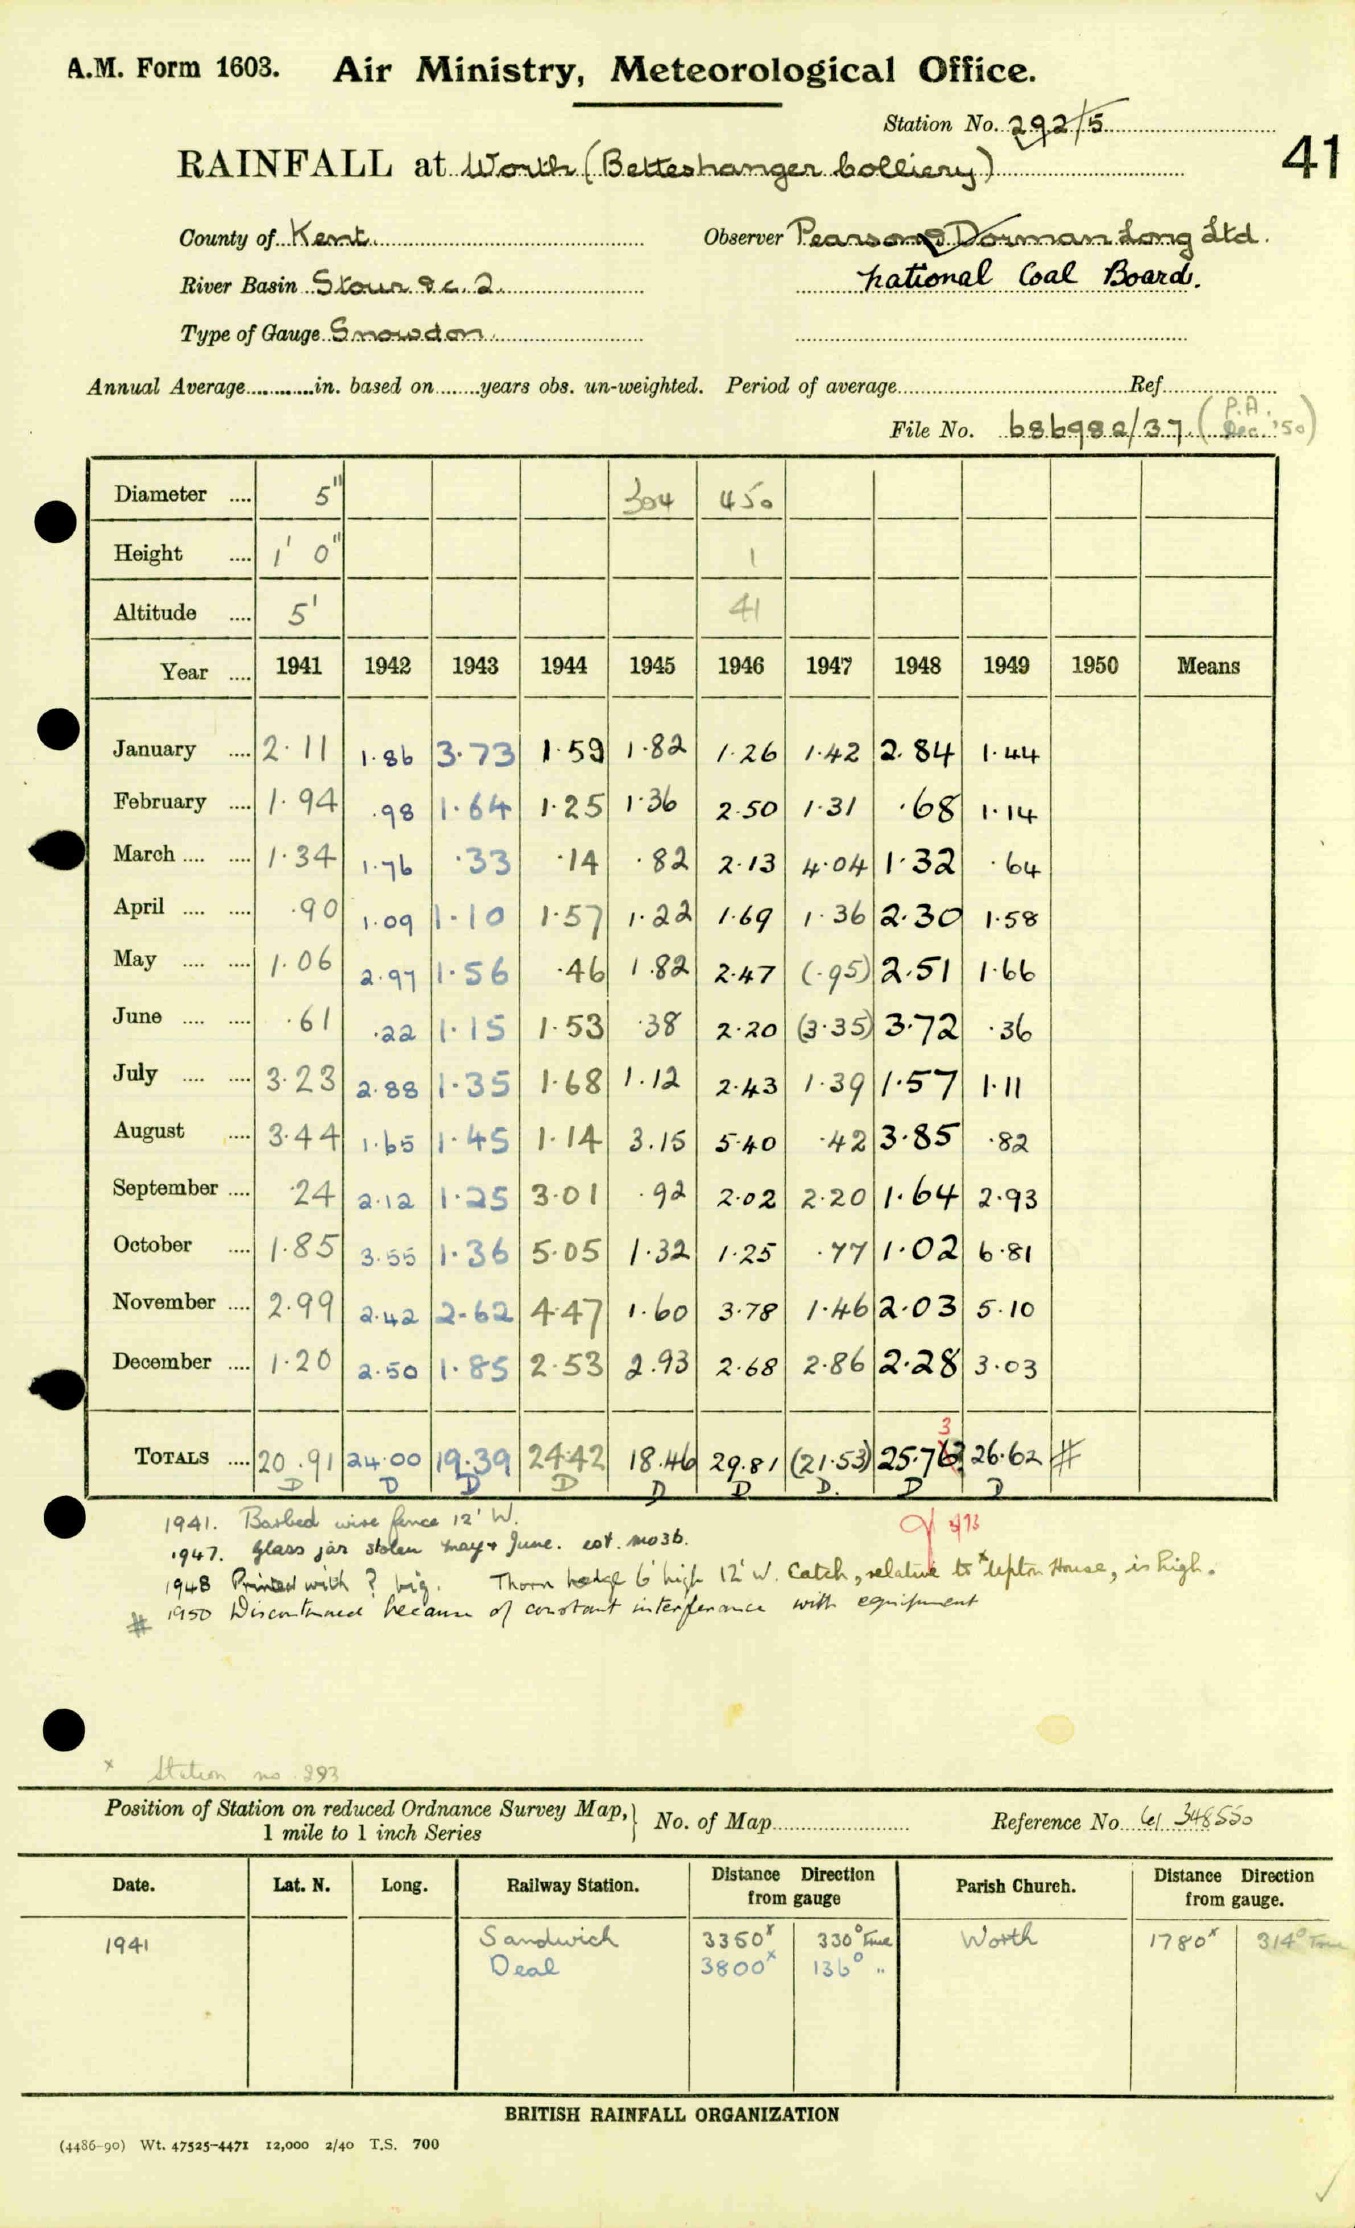 A.M. Form 1603. Air Ministry, Meteorological Office.
Station No. 292/5
41
RAINFALL at Worth (Betteshanger Colliery)
County of Kent. Observer Pearson & Dorman Long Ltd.
River Basin Stour &c. 2. National Coal Board.
Type of Gauge Snowdon.
Annual Average............in. based on........years obs. un-weighted. Period of average.......... Ref..........
File No. 686982/37. (P.A. Dec. '50)
Diameter .... 5" 304 450
Height .... 1' 0" 1
Altitude .... 5' 41
Year .... 1941 1942 1943 1944 1945 1946 1947 1948 1949 1950 Means
January .... 2.11 1.86 3.73 1.59 1.82 1.26 1.42 2.84 1.44
February .... 1.94 .98 1.64 1.25 1.36 2.50 1.31 .68 1.14
March .... .... 1.34 1.76 .33 .14 .82 2.13 4.04 1.32 .64
April .... .... .90 1.09 1.10 1.57 1.22 1.69 1.36 2.30 1.58
May .... .... 1.06 2.97 1.56 .46 1.82 2.47 (.95) 2.51 1.66
June .... .... .61 .22 1.15 1.53 .38 2.20 (3.35) 3.72 .36
July .... .... 3.23 2.88 1.35 1.68 1.12 2.43 1.39 1.57 1.11
August .... 3.44 1.65 1.45 1.14 3.15 5.40 .42 3.85 .82
September .... .24 2.12 1.25 3.01 .92 2.02 2.20 1.64 2.93
October .... 1.85 3.55 1.36 5.05 1.32 1.25 .77 1.02 6.81
November .... 2.99 2.42 2.62 4.47 1.60 3.78 1.46 2.03 5.10
December .... 1.20 2.50 1.85 2.53 2.93 2.68 2.86 2.28 3.03
3
TOTALS .... 20.91 24.00 19.39 24.42 18.46 29.81 (21.53) 25.76? 26.62 #
D D D D D D D. D D
1941. Barbed wire fence 12' W.
1947. Glass jar stolen May & June. est. mo3b.
1948 Printed with ? big. Thorn hedge 6' high 12' W. Catch, relative to x Upton House, is high.
# 1950 Discontinued because of constant interference with equipment
x Station no. 293
Position of Station on reduced Ordnance Survey Map, 1 mile to 1 inch Series } No. of Map.......... Reference No. 61 348550
Date. Lat. N. Long. Railway Station. Distance Direction from gauge Parish Church. Distance Direction from gauge.
1941 Sandwich 3350x 330° True Worth 1780x 314° True
Deal 3800x 136° "
BRITISH RAINFALL ORGANIZATION
(4486-90) Wt. 47525-4471 12,000 2/40 T.S. 700